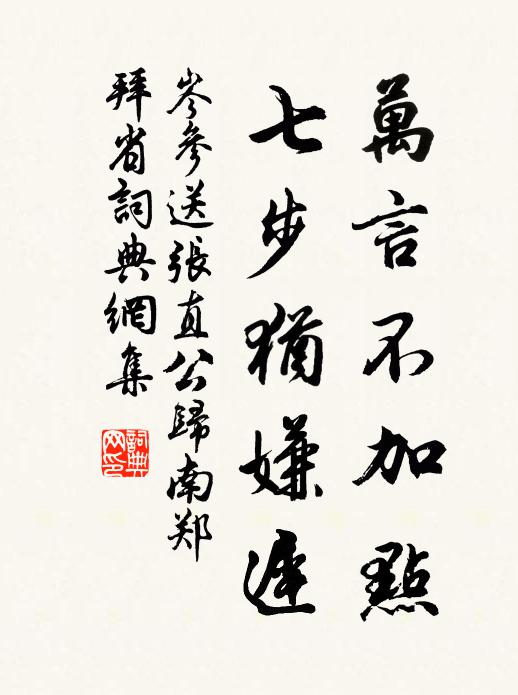 萬言不加點
七步猶嫌遲
岑參送張直公歸南郑
拜省詞典網集
詞典
网印